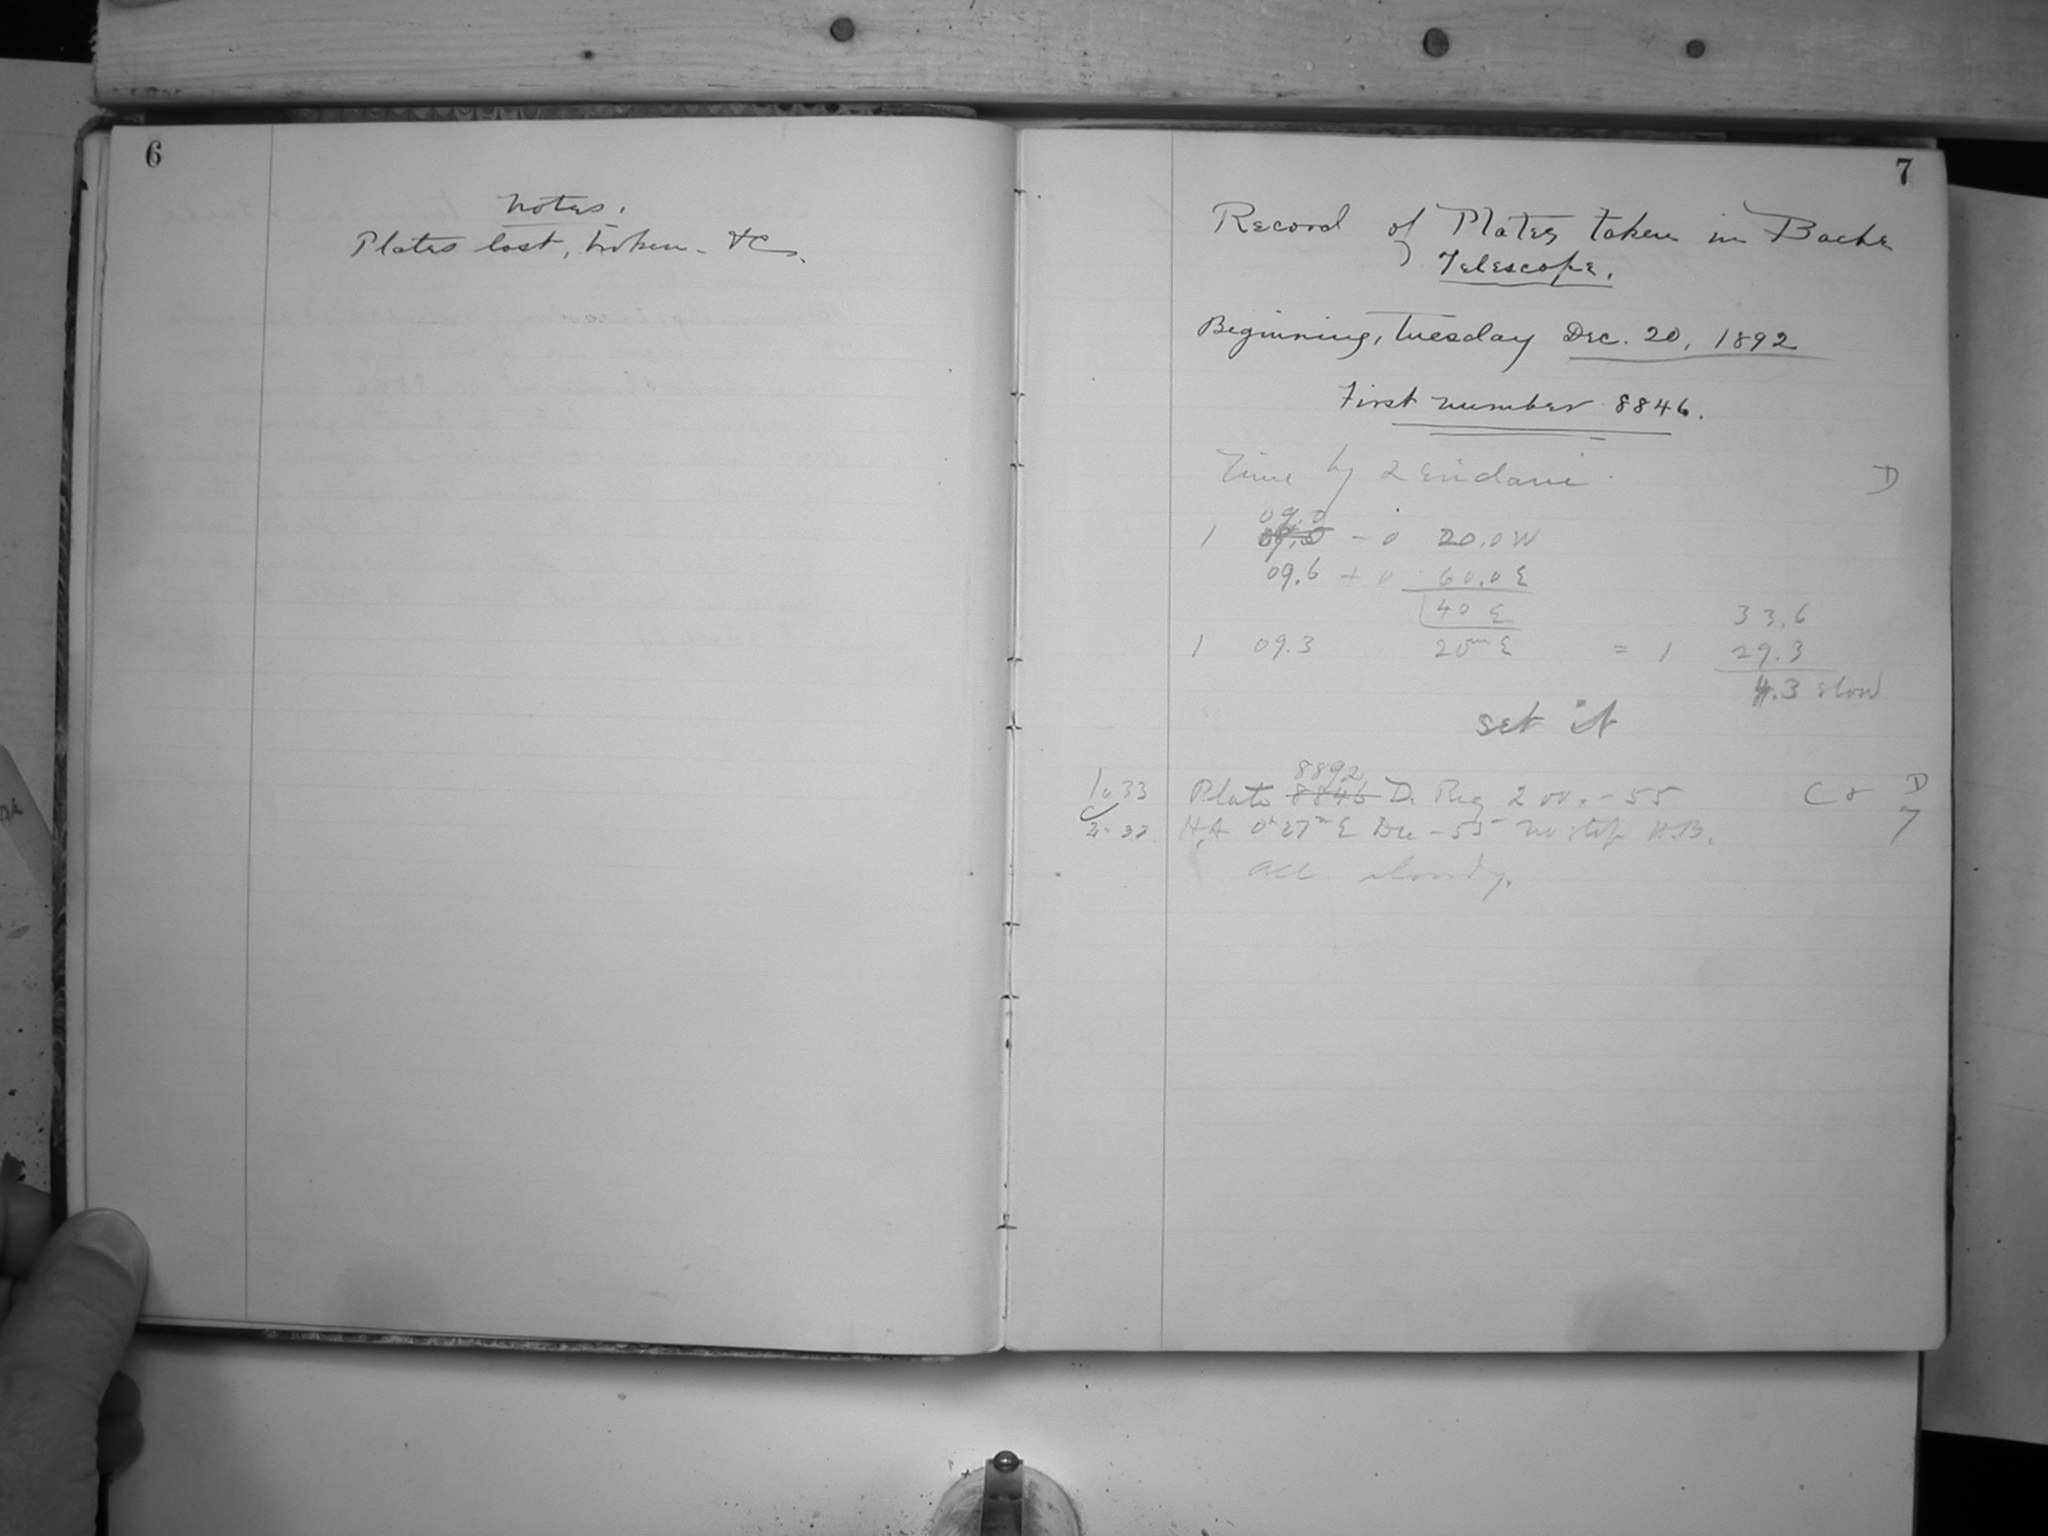 6
Notes.
Plates lost, broken - &c.
7
Record of Plates taken in Bache
Telescope.
Beginning, Tuesday Dec. 20, 1892
First number 8846.
Time by D
09.0
1 - 0 20.0 W
09.6 + 0 60.0 E
40 E 33.6
1 09.3 20m E = 1 29.3
4.3 slow
set it
8892
1 33 Plate 8846 D. Reg 200. - 55 C 8 D
2 33 H.A 0h 27m E Dec - 55 no stop H.B. 7
all cloudy.